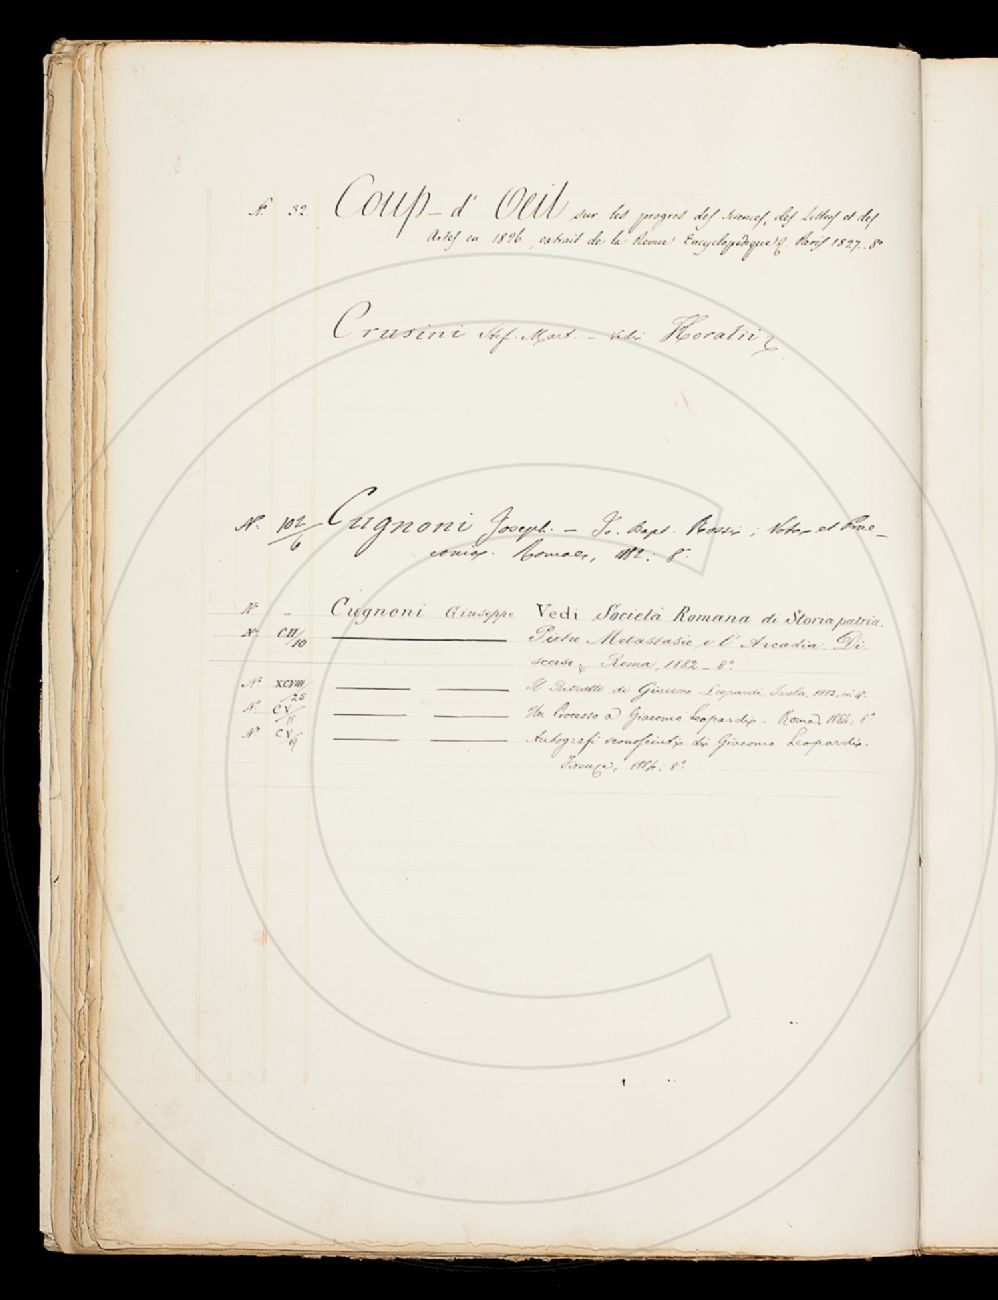 N. 32 Coup-d' Oeil sur les progres des sciences, des Lettres et des
Artes en 1826, extrait de la Revue Encyclopedique Paris 1827. 8°
Crusini Stef. Mart. - vedi Horatii
N. 102/6 Cugnoni Joseph. - Jo. Bapt. Rossi; Notae et Prae-
conia. Romae, 1882: 8°.
N. - Cugnoni Giuseppe Vedi Società Romana di Storia patria.
N. CII/10 Pietro Metastasio e l'Arcadia. Di
scorso, Roma, 1882 - 8°
N. XCVIII/25 Il Ritratto di Giacomo Leopardi. 1882, in 4°.
N. CV/18 Un Processo a Giacomo Leopardi. Roma, 1884: 8°
N. CV/19 Autografi sconosciuti di Giacomo Leopardi.
Firenze, 1884: 8°.